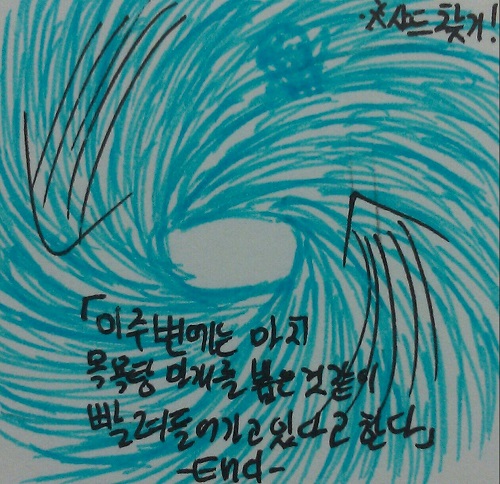 ·초사드 찾기!
「이 주변에는 마치
목욕탕 마개를 뽑은 것 같이
빨려들어가고 있다고 한다」
-End-